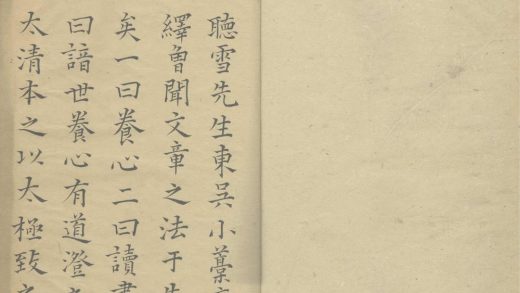 聽雪先生東吳小藁
繹曾聞文章之法于先
矣一曰養心二曰讀書
曰諳世養心有道澄
太清本之以太極致